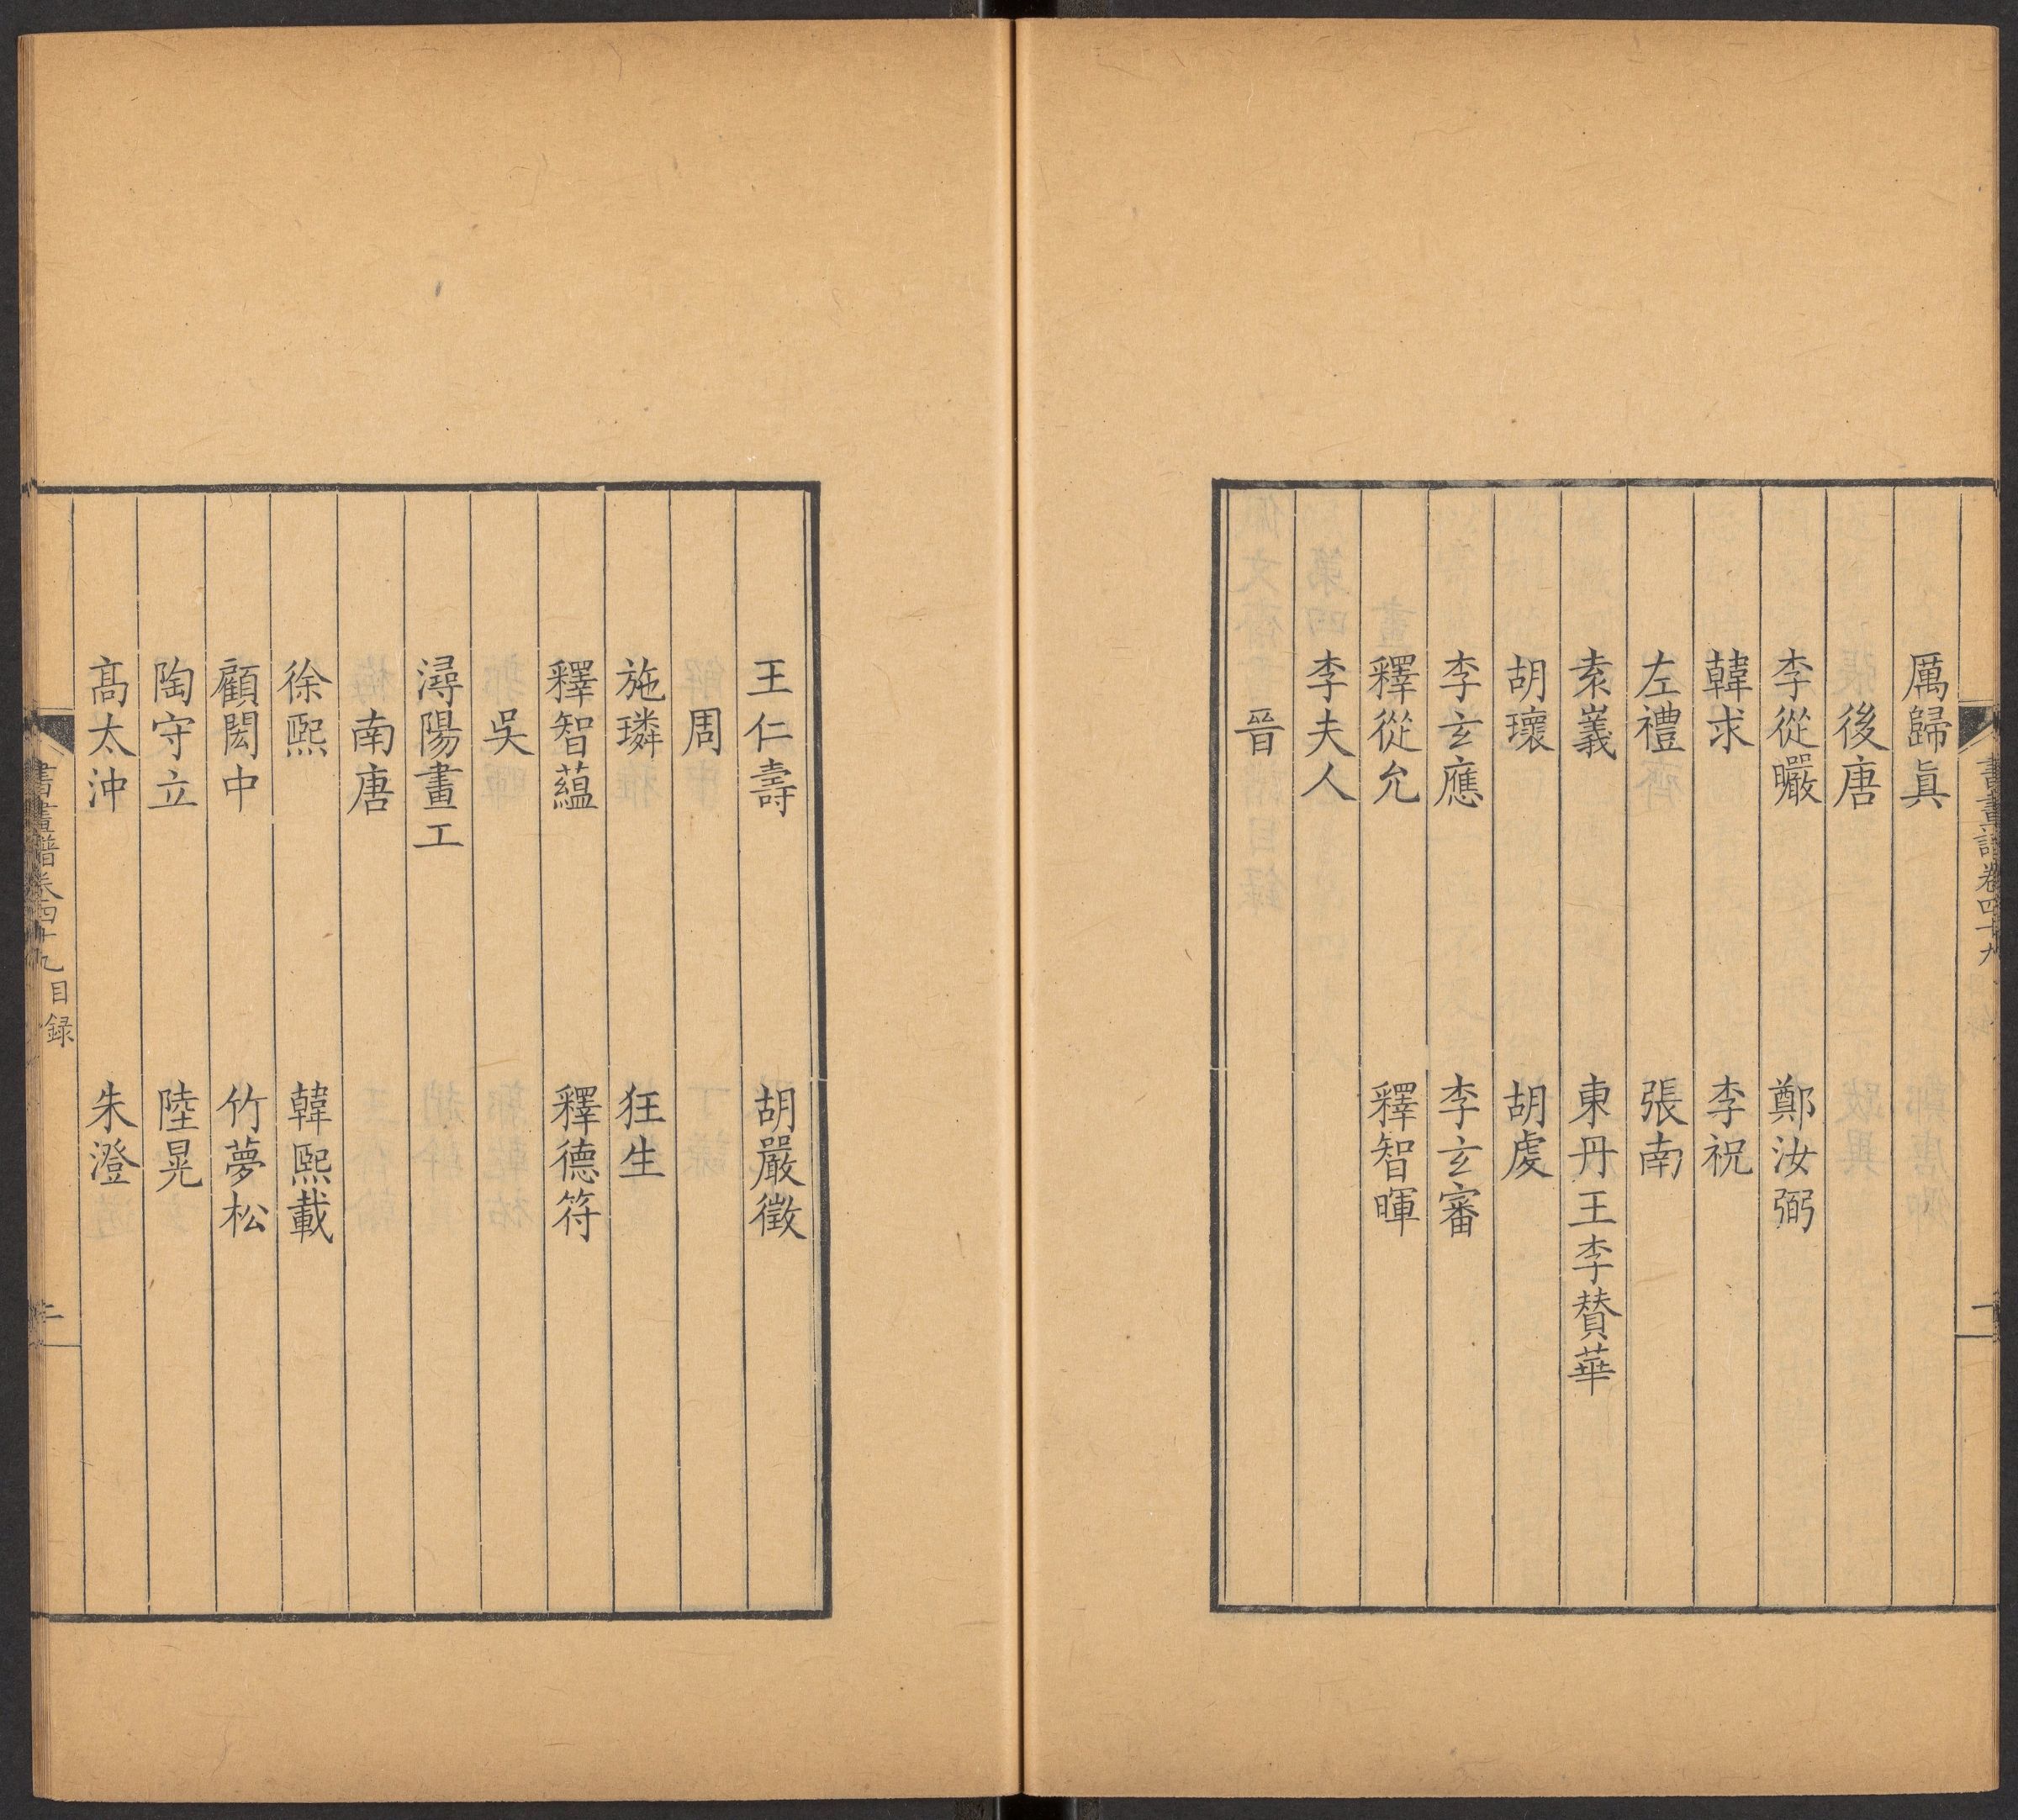 書畫譜卷四十九
一
厲歸眞
後唐
李從曮　鄭汝弼
韓求　李祝
左禮　張南
袁嶬　東丹王李賛華
胡瓌　胡虔
李玄應　李玄審
釋從允　釋智暉
李夫人
晉
王仁壽　胡嚴徵
周
施璘　狂生
釋智蘊　釋德符
吳
潯陽畫工
南唐
徐熙　韓熙載
顧閎中　竹夢松
陶守立　陸晃
髙太沖　朱澄
書畫譜卷四十九 目録
二